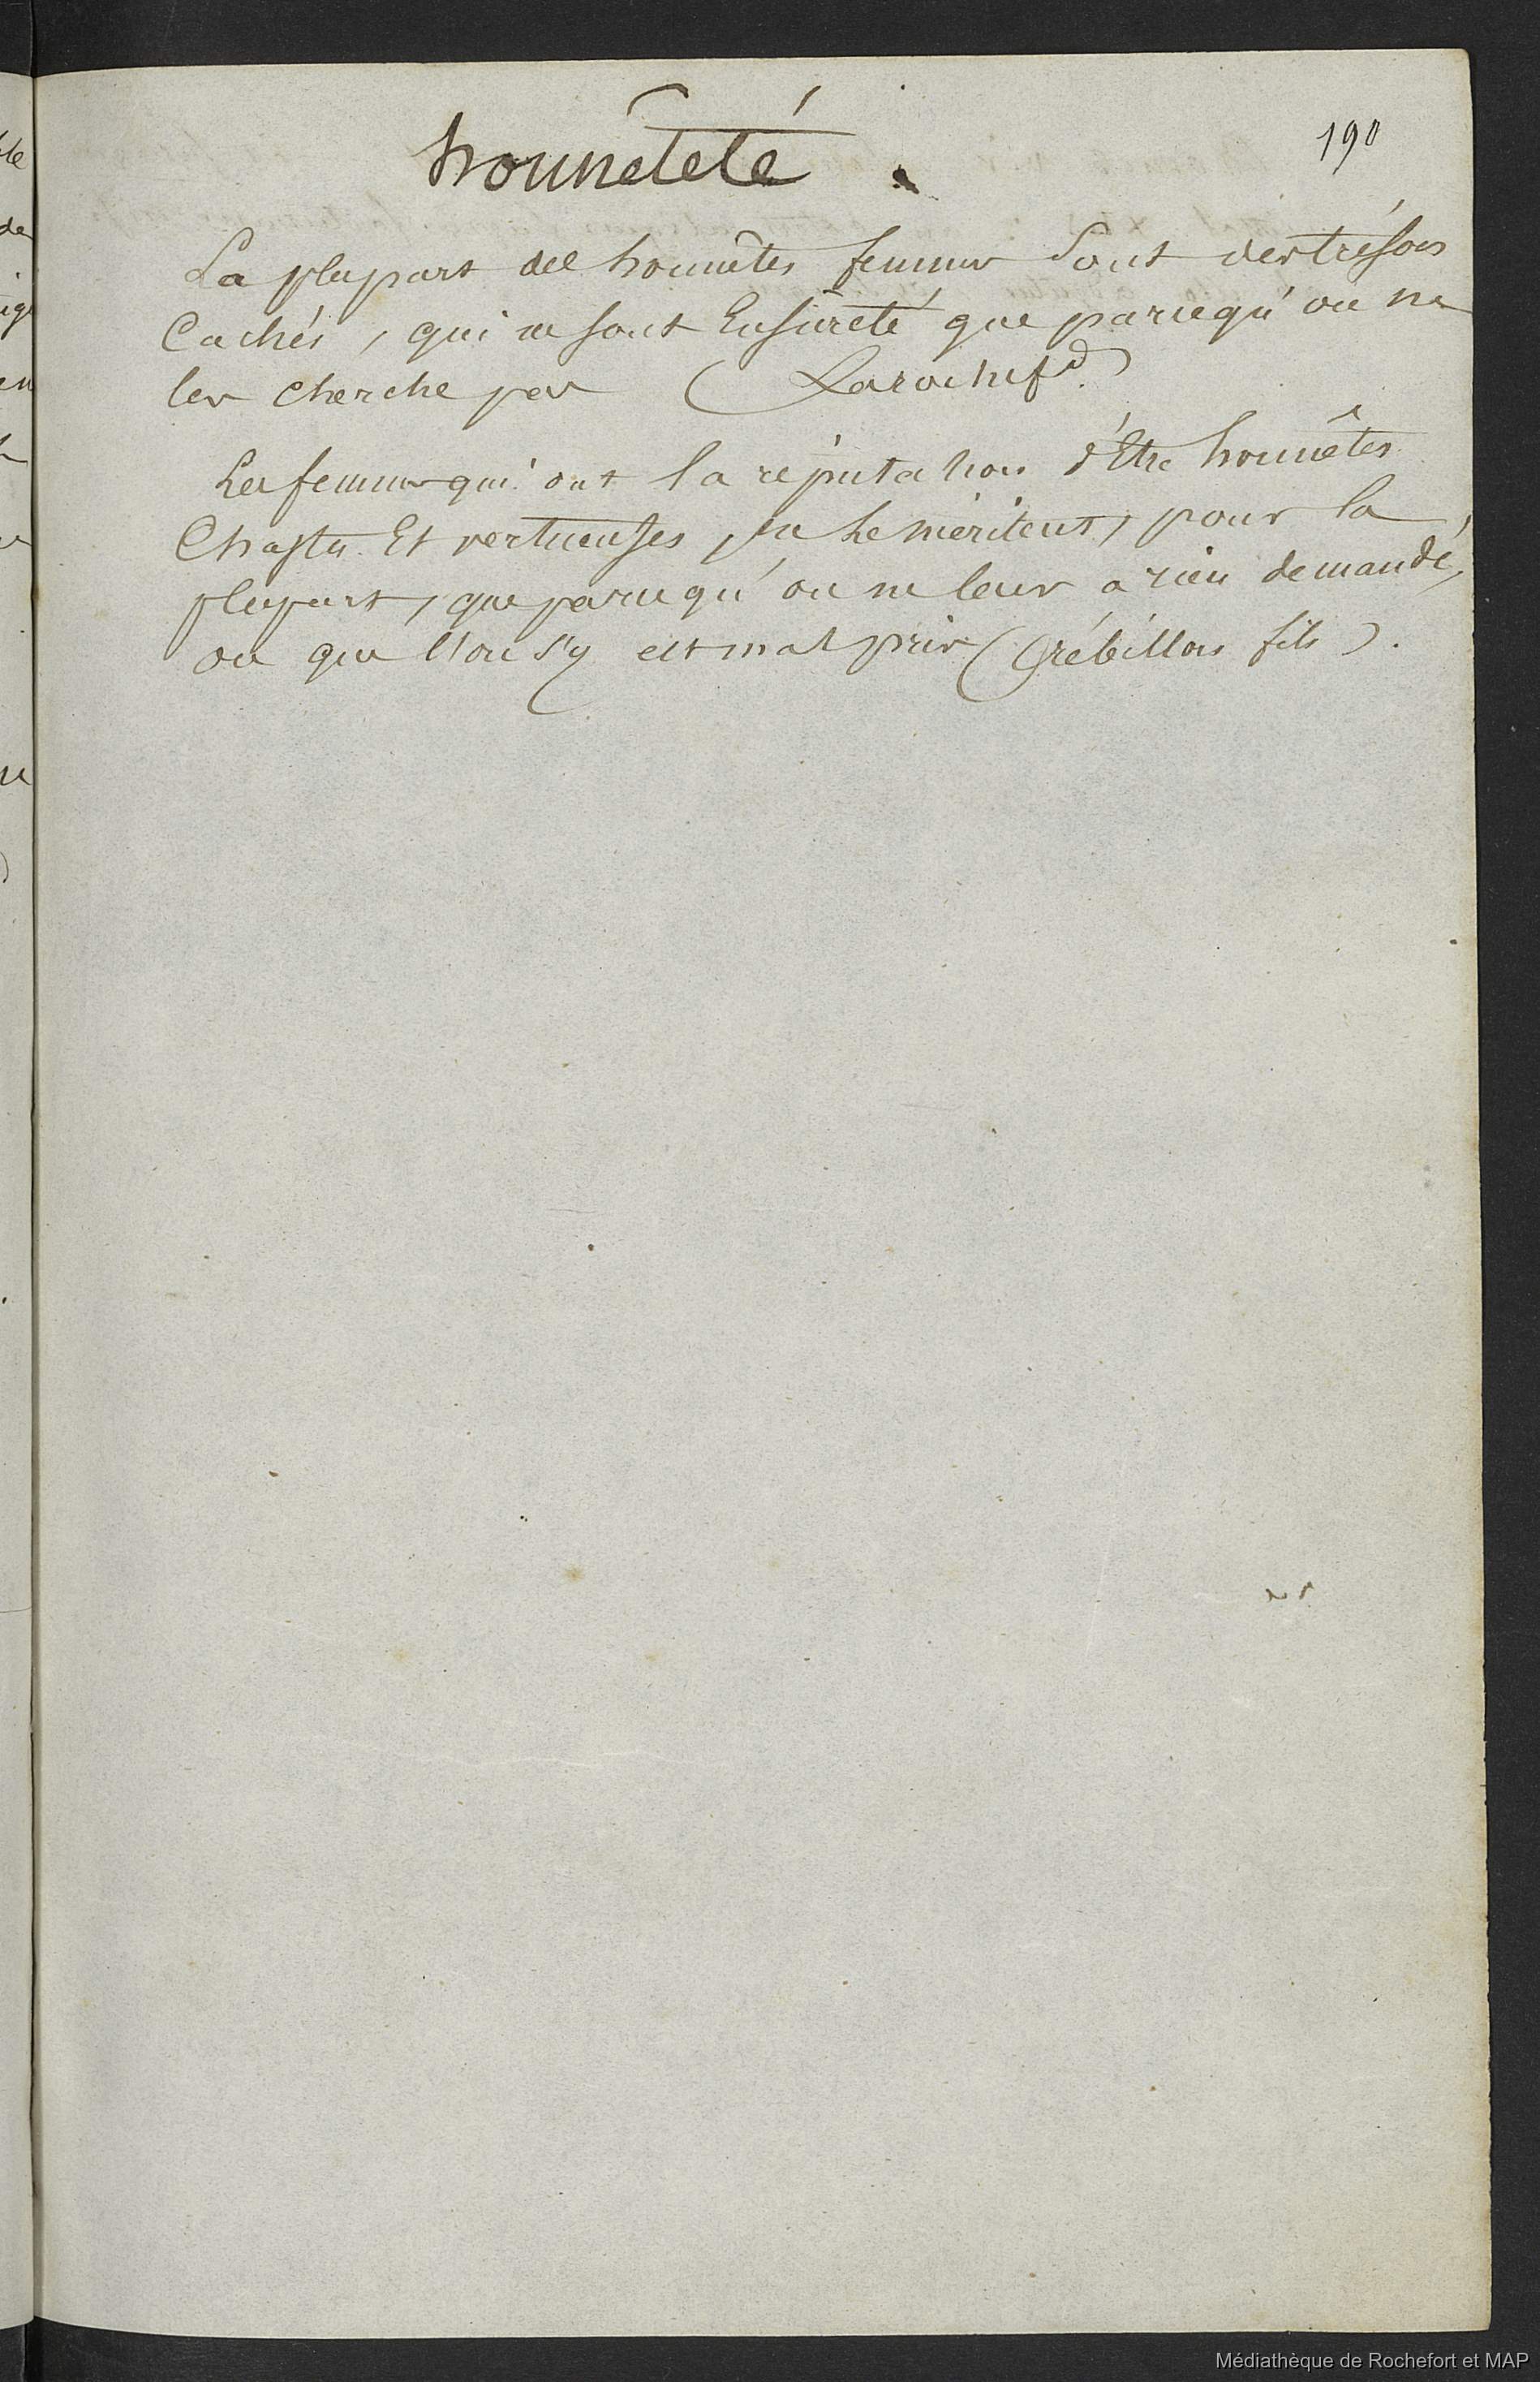 190
honnêteté.
La plupart des honnêtes femmes sont des trésors
Cachés, qui ne sont En sûreté que parcequ'on ne
les cherche pas (Larochefd.)
Les femmes qui ont la réputation d'Etre honnêtes
Chastes Et vertueuses, ne le méritent, pour la
plupart, que parcequ'on ne leur a rien demandé,
ou que l'on s'y est mal pris (Crébillon fils).
Médiathèque de Rochefort et MAP